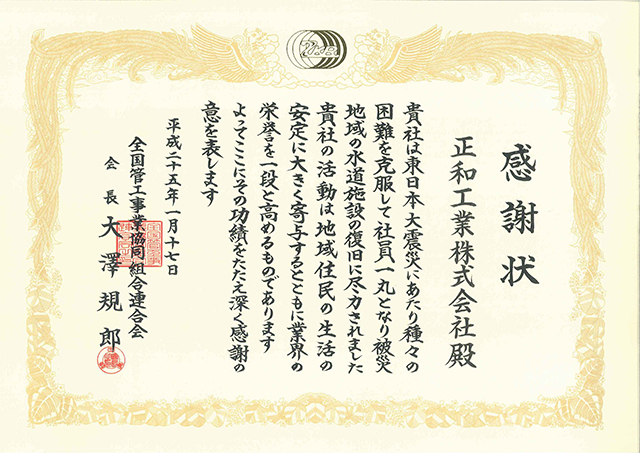 感謝状
正和工業株式会社殿
貴社は東日本大震災にあたり種々の
困難を克服して社員一丸となり被災
地域の水道施設の復旧に尽力されました
貴社の活動は地域住民の生活の
安定に大きく寄与するとともに業界の
栄誉を一段と高めるものであります
よってここにその功績をたたえ深く感謝の
意を表します
平成二十五年一月十七日
全国管工事業協同組合連合会
会長 大澤規郎